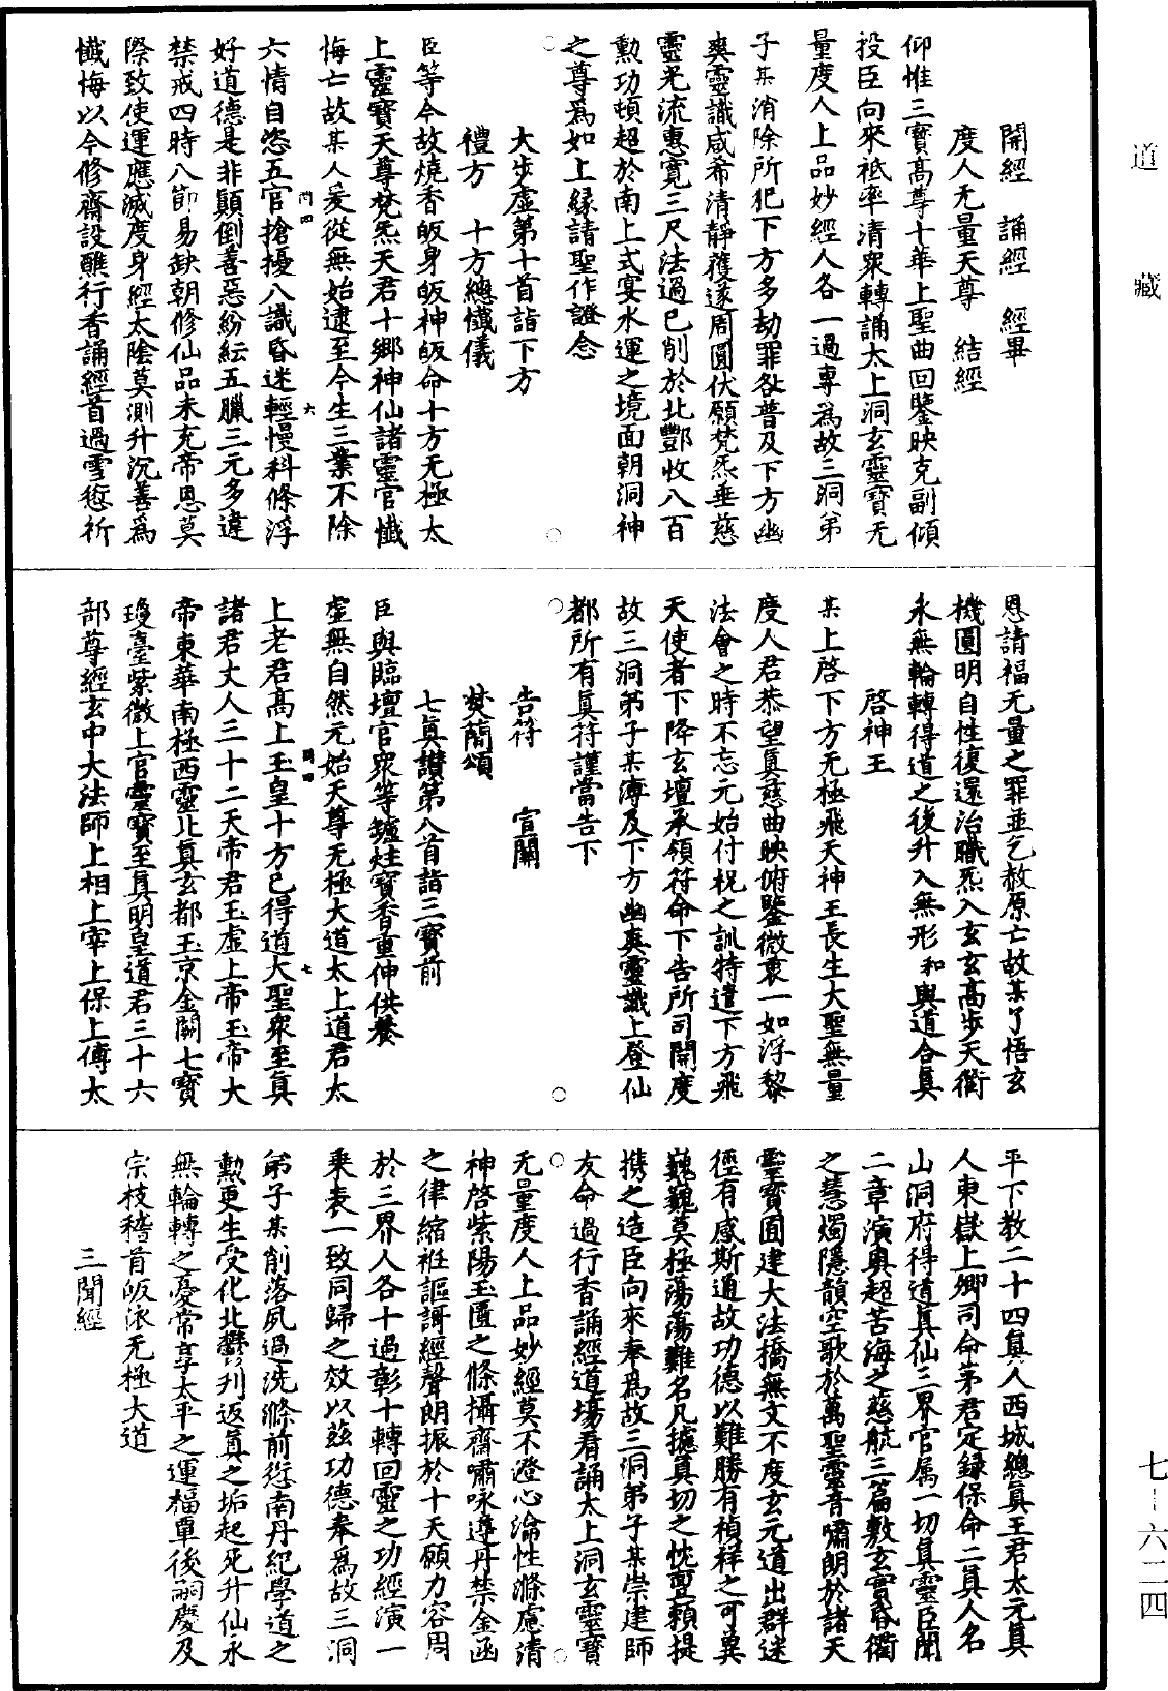 道藏
開經　誦經　經畢
度人无量天尊　結經
仰惟三寶高尊十華上聖曲回鑒映克副傾
投臣向來祗率清衆轉誦太上洞玄靈寶无
量度人上品妙經人各一過專爲故三洞弟
子某消除所犯下方多劫罪咎普及下方幽
爽靈識咸希清靜獲遂周圓伏願梵炁垂慈
靈光流惠寬三尺法過已削於北酆收八百
勳功頓超於南上式宴水運之境面朝洞神
之尊爲如上緣請聖作證念
大步虛第十首詣下方
禮方　十方總懺儀
臣等今故燒香皈身皈神皈命十方无極太
上靈寶天尊梵炁天君十鄉神仙諸靈官懺
悔亡故某人爰從無始逮至今生三業不除
六情自恣五官搶擾八識昏迷輕慢科條浮
好道德是非顛倒善惡紛紜五臘三元多違
禁戒四時八節易缺朝修仙品未充帝恩莫
際致使運應滅度身經太陰莫測升沉善爲
懺悔以今修齋設醮行香誦經首過雪愆祈
恩請福无量之罪並乞赦原亡故某了悟玄
機圓明自性復還治職炁入玄玄高步天衢
永無輪轉得道之後升入無形和與道合真
啓神王
某上啓下方无極飛天神王長生大聖無量
度人君恭望真慈曲映俯鑒微衷一如浮黎
法會之時不忘元始付祝之訓特遣下方飛
天使者下降玄壇承領符命下告所司開度
故三洞弟子某漙及下方幽爽靈識上登仙
都所有真符謹當告下
告符　宣關
焚簡頌
七真讚第八首詣三寶前
臣與臨壇官衆等鑪炷寶香重伸供養
虛無自然元始天尊无極大道太上道君太
上老君高上玉皇十方已得道大聖衆至真
諸君丈人三十二天帝君玉虛上帝玉帝大
帝東華南極西靈北真玄都玉京金闕七寶
瓊臺紫微上宮靈寶至真明皇道君三十六
部尊經玄中大法師上相上宰上保上傅太
平下教二十四真人西城總真王君太元真
人東嶽上卿司命茅君定録保命二真人名
山洞府得道真仙三界官属一切真靈臣聞
二章演奧超苦海之慈航三篇敷玄寶昏衢
之慧燭隱韻空歌於萬聖靈音嘯朗於諸天
靈寶囿建大法橋無文不度玄元道出群迷
徑有感斯通故功德以難勝有禎祥之可冀
巍巍莫極蕩蕩難名凡攄真切之忱亶頼提
携之造臣向來奉爲故三洞弟子某崇建師
友命過行香誦經道場看誦太上洞玄靈寶
无量度人上品妙經莫不澄心淪性滌慮清
神啓紫陽玉匱之條攝齋嘯咏遵丹禁金函
之律縮袵謳謌經聲朗振於十天願力容周
於三界人各十過彰十轉回靈之功經演一
乘表一致同歸之效以茲功德奉爲故三洞
弟子某削落夙過洗滌前愆南丹紀學道之
勳更生受化北酆刋返真之垢起死升仙永
無輪轉之憂常享太平之運福覃後嗣慶及
宗枝稽首皈依无極大道
三聞經
七-六二四